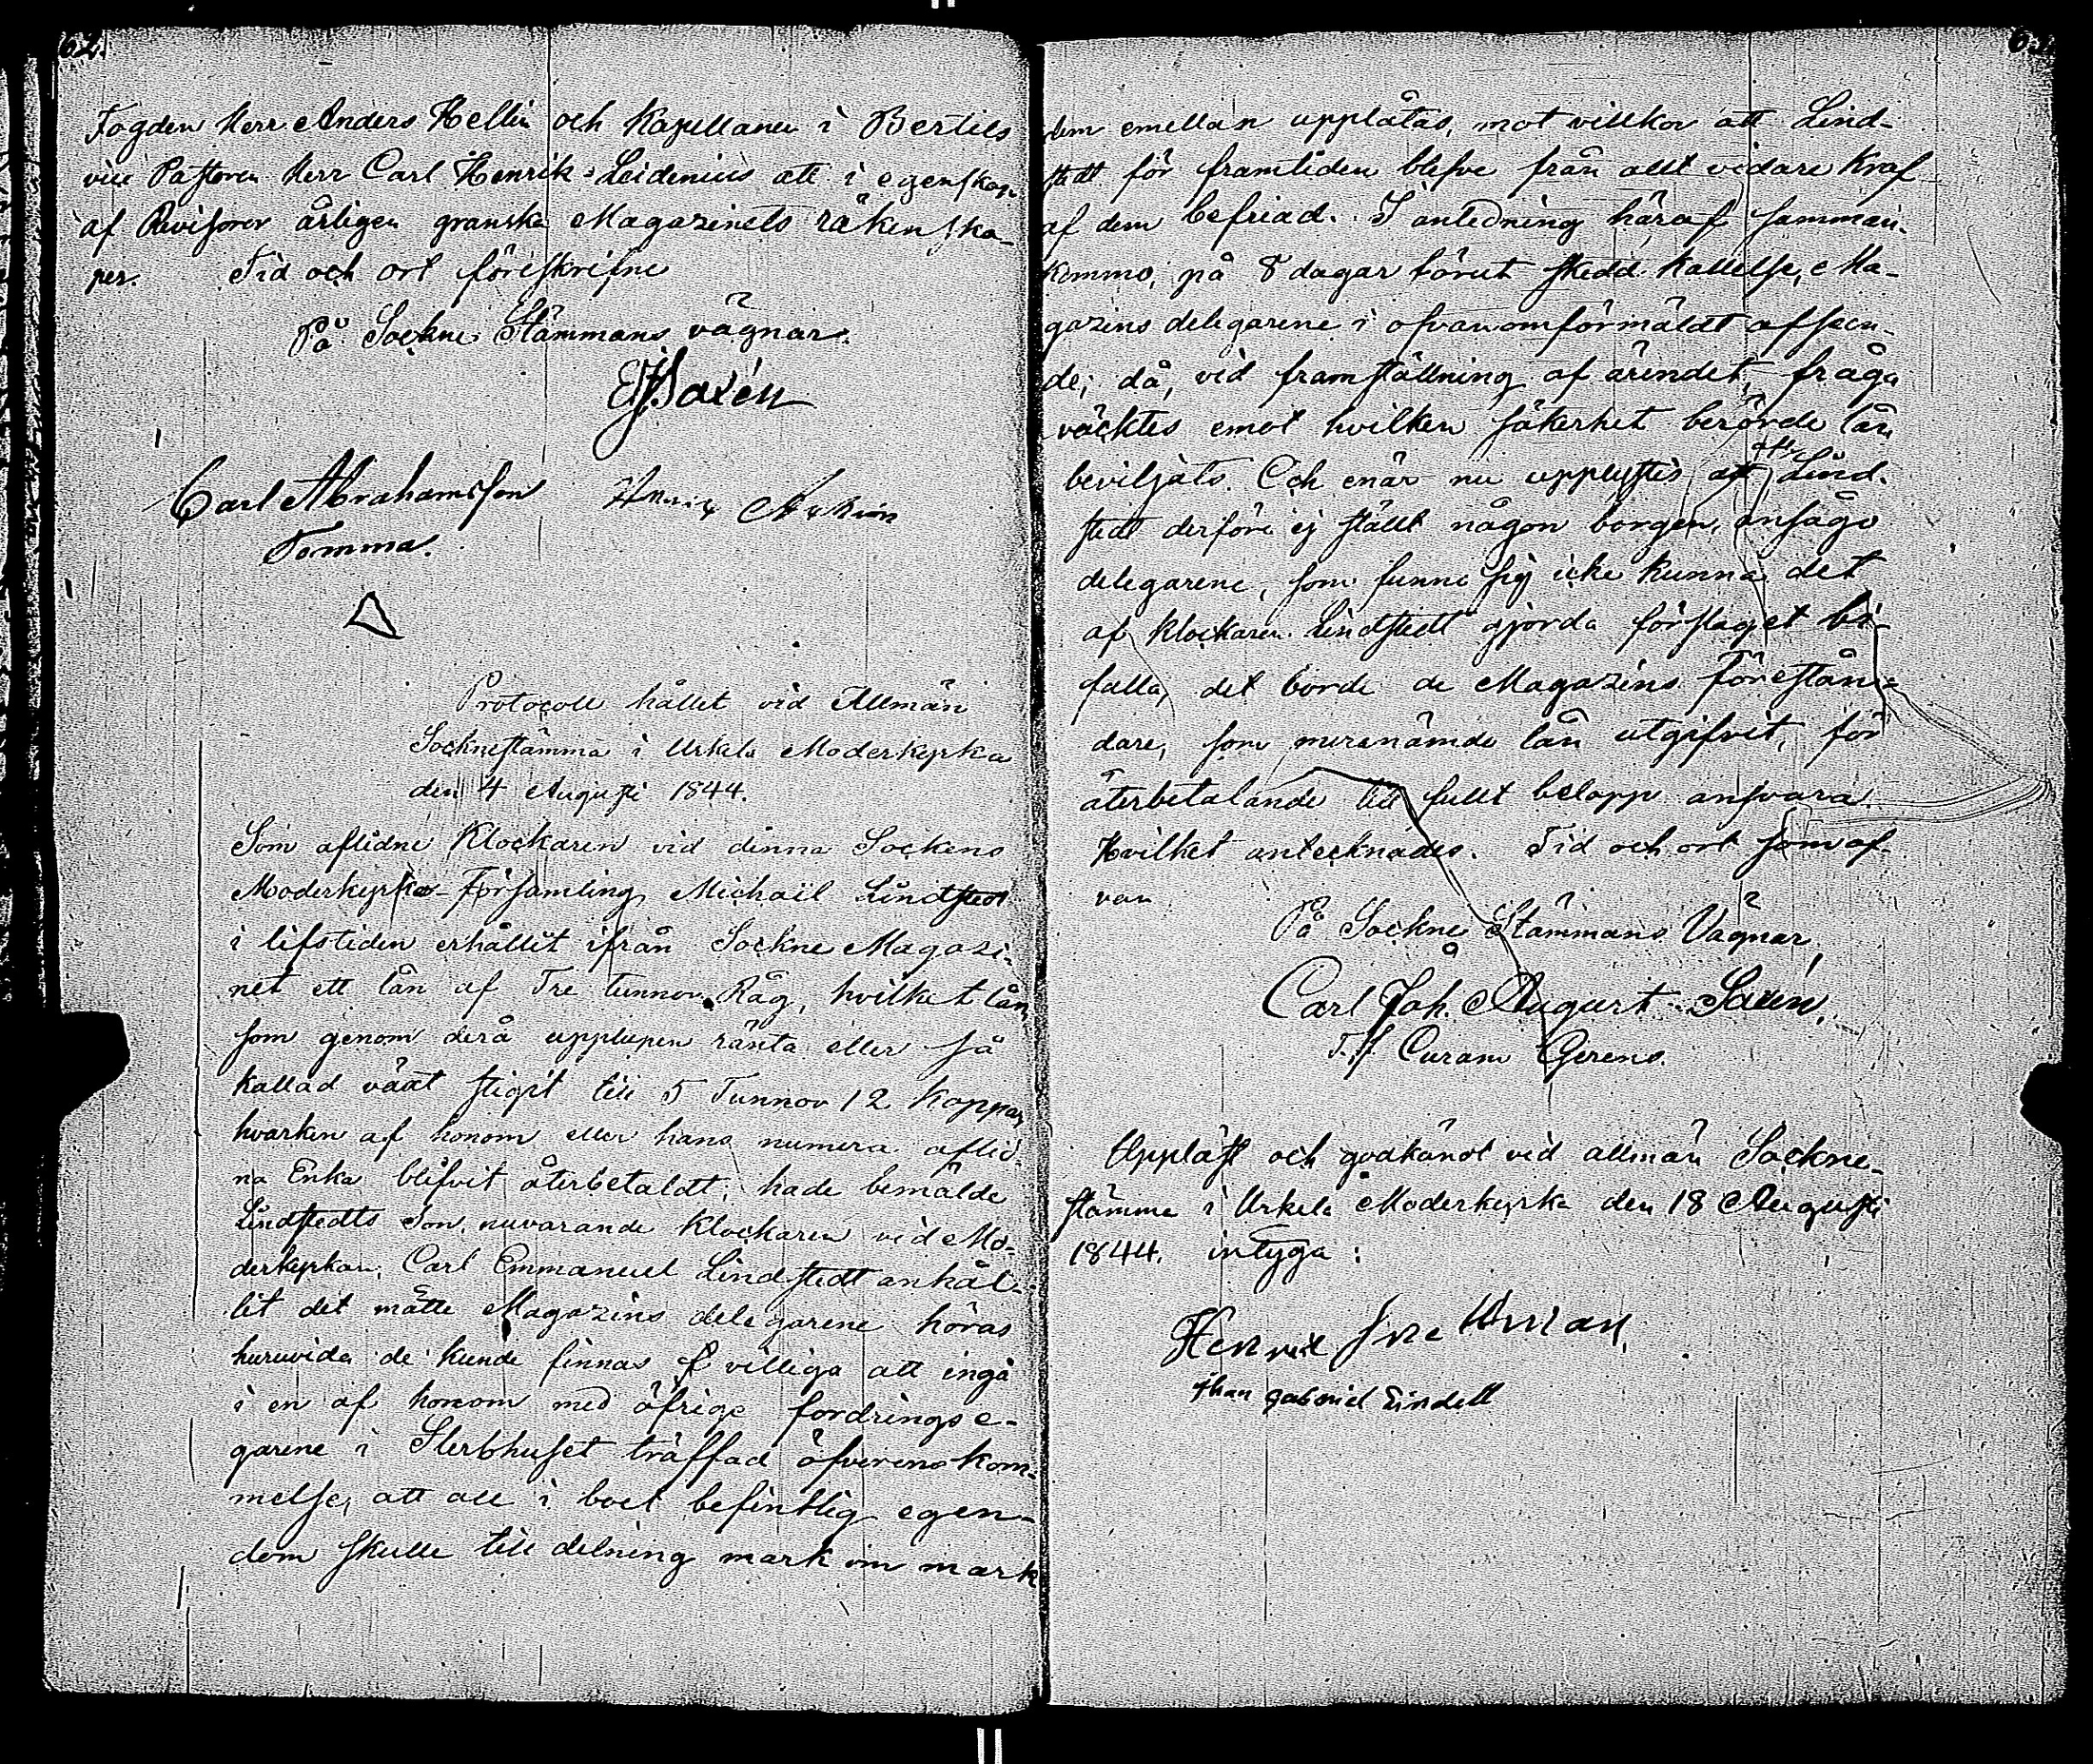 62.
Fogden Herr Anders Hellin och Kapellanen i Bertils
vice Pastoren Herr Carl Henrik Leidenius att i egenskap
af Revisorer årligen granska Magazinets räkenska-
per. Tid och ort föreskrifne
På Sockne Stämmans vägnar.
Saxén
Carl Abrahamsson
Tomma.
Protocoll hållet vid Allmän
Socknestämma i Urkela Moderkyrka
den 4 Augusti 1844.
Som aflidne Klockaren vid denna Sockens
Moderkyrko-Församling Michaël Lindstedt
i lifstiden erhållit ifrån Sockne Magazi-
net ett lån af Tre tunnor Råg, hvilket lån
som genom derå upplupen ränta eller så
kallad växt stigit till 5 Tunnor 12 Kappar
hvarken af honom eller hans numera aflid-
na Enka blifvit återbetaldt; hade bemälde
Lindstedts Son, nuvarande Klockaren vid Mo-
derkyrkan, Carl Emmanuel Lindstedt anhål-
lit det måtte Magazins delegarene höras
huruvida de kunde finnas villiga att ingå
i en af honom med öfrige fordringse-
garene i Sterbhuset träffad öfverenskom-
melse, att all i boet befintlig egen-
dom skulle till delning mark om mark
dem emellan upplåtas, mot villkor att Lind-
stedt för framtiden blefve från allt vidare kraf
af dem befriad. I anledning häraf samman-
kommo, på 8 dagar förut skedd kallelse, Ma-
gazins delegarene i ofvanomförmäldt afseen-
de; då, vid framställning af ärendet, fråga
väcktes emot hvilken säkerhet berörde lån
beviljats. Och enär nu upplystes att Lind-
stedt derföre ej ställt någon borgen, ansågo
delegarene, som funno sig icke kunna det
af Klockaren Lindstedt gjorda förslaget bi-
falla, det borde de Magazins Förestån-
dare, som meranämde lån utgifvit, för
återbetalande till fullt belopp ansvara.
Hvilket antecknades. Tid och ort som of-
van
På Sockne Stämmans Vägnar,
Carl Joh. August Saxén,
T.f. Curam Gerens.
Uppläst och godkändt vid allmän Sockne-
stämma i Urkela Moderkyrka den 18 Augusti
1844. intyga:
Henrik
Gabriel Lindell